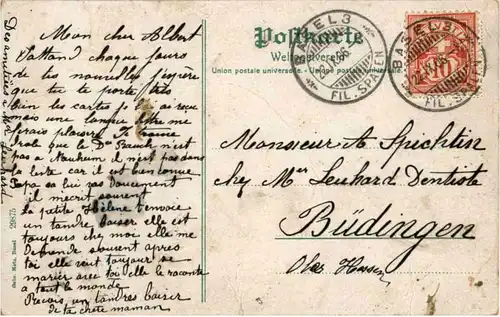 Mon cher Albert
J'attand chaque jours
de tes nouvelles j'espère
que tu te porte très
bien les cartes je l'ai reçue
mais une longue lettre me
ferais plaisire Je trouve
drole que le Dr Bauch n'est
pas a Nauheim il n'est pas dans
la liste car il est bien connue
Papa sa lui vas doucement
il m'ecrit souvent
la petite Hélène t'envoie
un tandre baiser elle est
toujours chez moi elle me
demande souvent apres
toi elle veut toujour se
marier avec toi elle le raconte
a tout le monde
Recois un tandres baiser
de ta chere maman
Des amitiées a Mr Leuhard
Gebr. Metz, Basel 29875
Postkarte
Weltpostverein
Union postale universelle. - Unione postale universale.
BASEL 3
FIL. SPALEN
BASEL 3
FIL. SPALEN
10
Monsieur A Spechtin
chez Mr Leuhard Dentiste
Büdingen
Ober Hessen